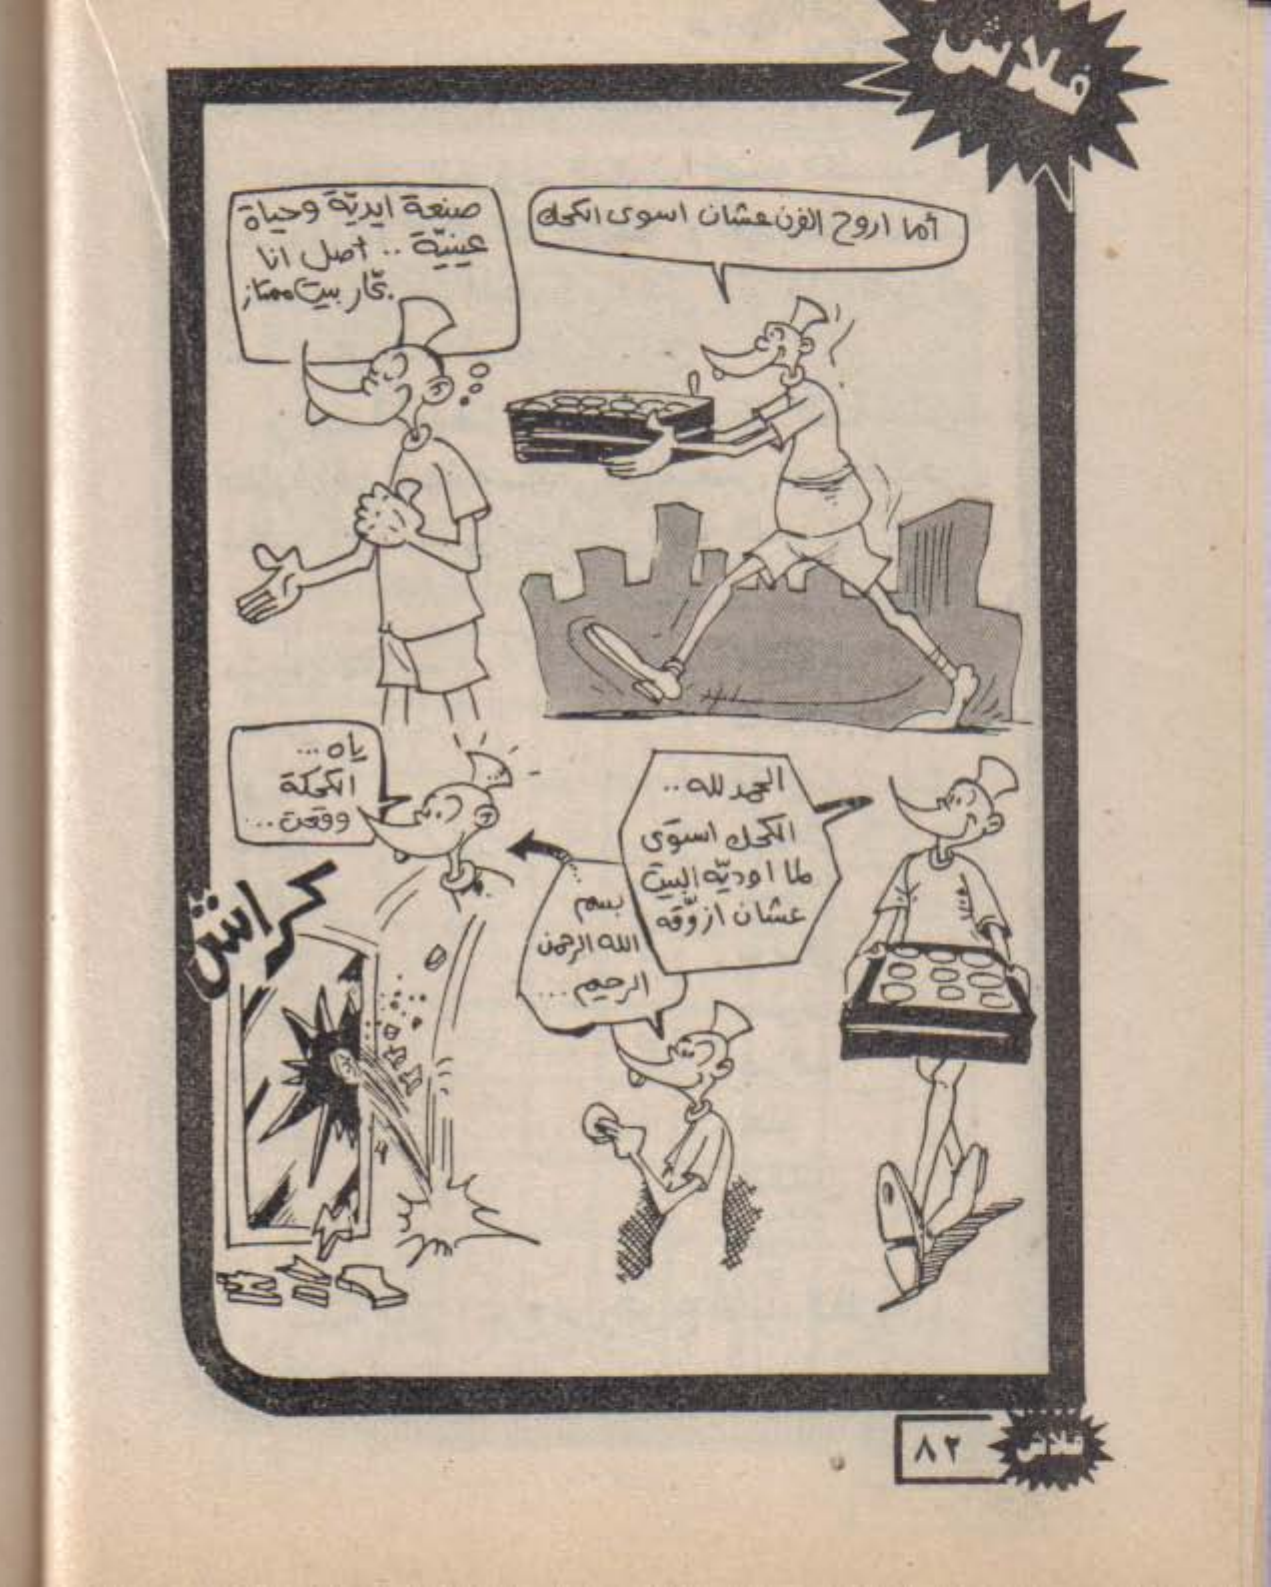 فلاش
أما اروح الفرن عشان اسوى الكحك
صنعة ايديّة وحياة
عينيّة .. أصل انا
بيت ممتاز
الحمد لله ..
الكحك استوى
لما اوديّه البيت
عشان ازوّقه
بسم
الله الرحمن
الرحيم ...
ياه ...
الكحكة
وقعت ...
كراش
٨٢
فلاش